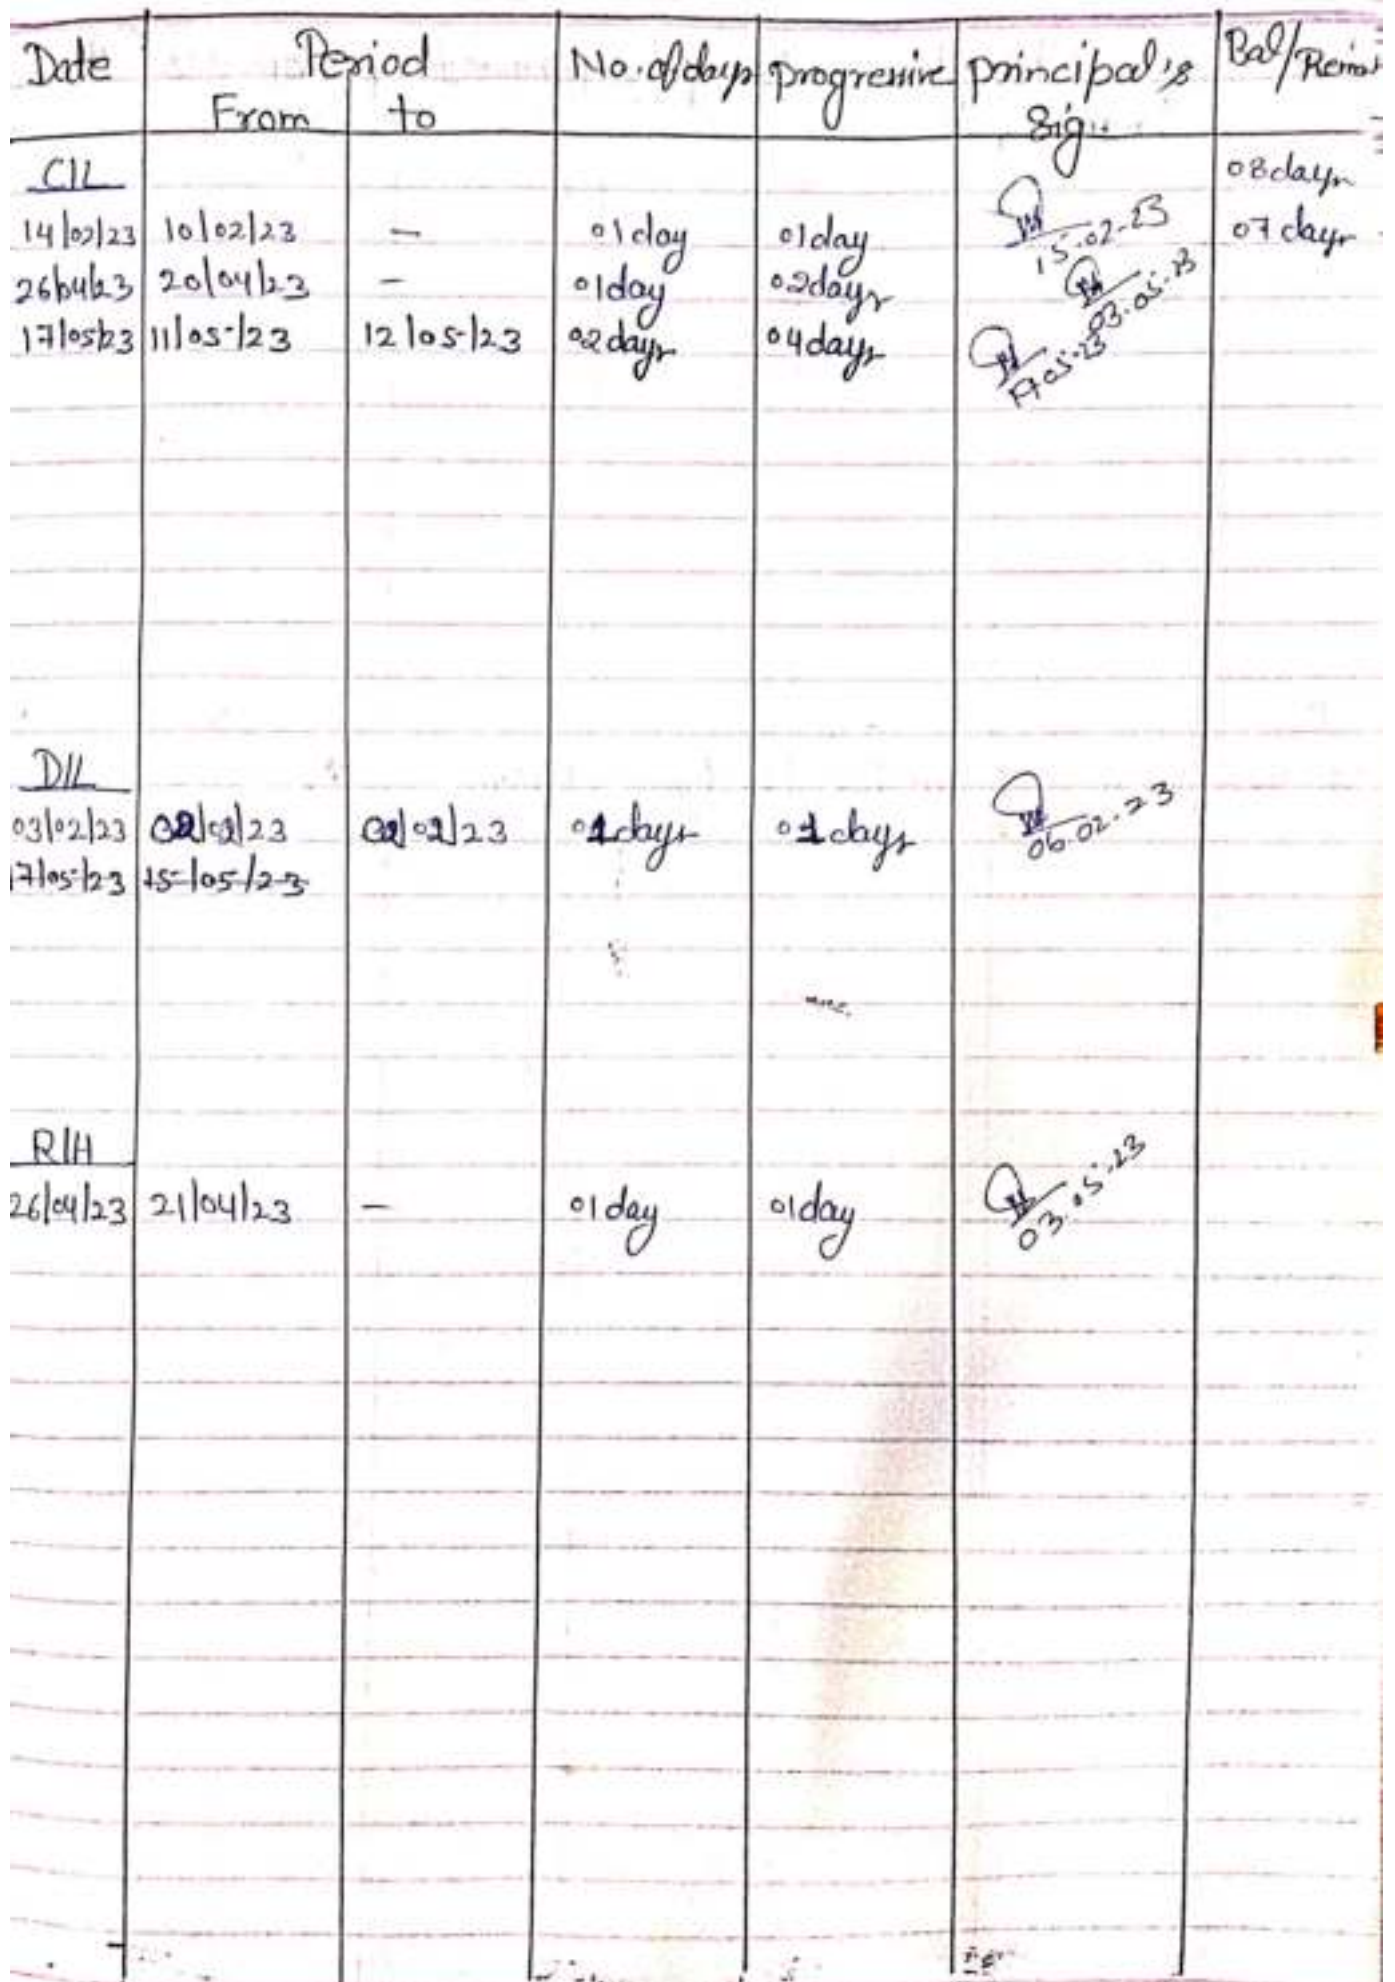 Date Period No. of days progressive principal's Bal/Remar
From to Sig.
C/L 08 days
14/02/23 10/02/23 — 01 day 01 day 15-02-23 07 days
26/04/23 20/04/23 — 01 day 02 days 03.05.23
17/05/23 11/05/23 12/05/23 02 days 04 days 17.05.23
D/L
03/02/23 02/02/23 02/02/23 01 days 01 days 06.02.23
17/05/23 15/05/23
R/H
26/04/23 21/04/23 — 01 day 01 day 03.05.23